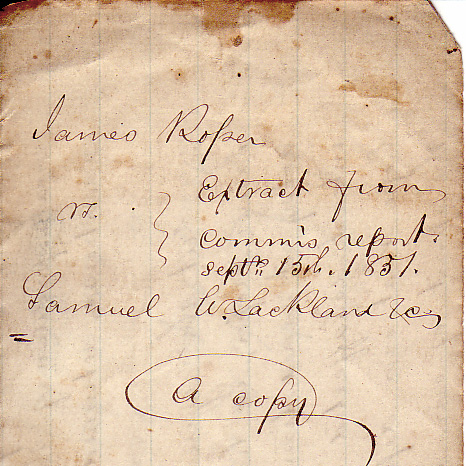 James Roper
vs. } Extract from
Commis report.
septbr. 15th. 1851.
Samuel W. Lackland &c
A copy